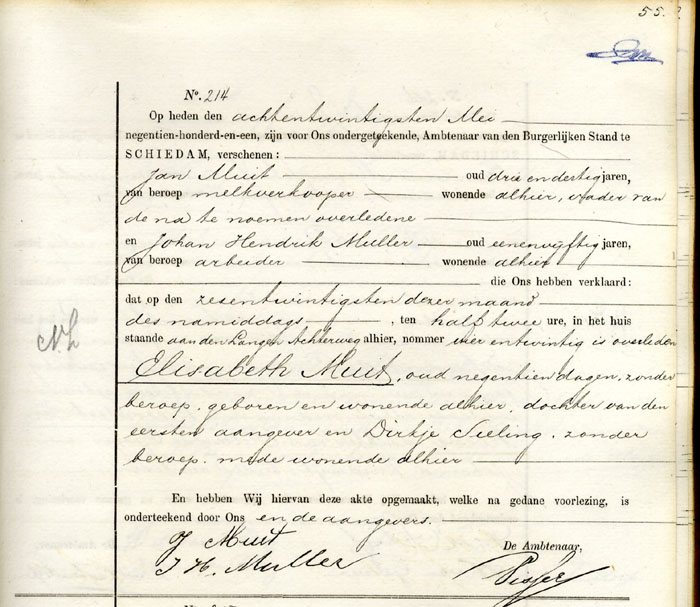 55.
No. 214
Op heden den achtentwintigsten Mei
negentien-honderd-en-een, zijn voor Ons ondergeteekende, Ambtenaar van den Burgerlijken Stand te
SCHIEDAM, verschenen:
Jan Muit oud drie en dertig jaren,
van beroep melkverkooper wonende alhier, vader van
de na te noemen overledene
en Johan Hendrik Muller oud eenenvijftig jaren,
van beroep arbeider wonende alhier
die Ons hebben verklaard:
dat op den zesentwintigsten dezer maand
des namiddags, ten half twee ure, in het huis
staande aan den Langen Achterweg alhier, nommer vier entwintig is overleden
Elisabeth Muit, oud negentien dagen, zonder
beroep, geboren en wonende alhier, dochter van den
eersten aangever en Dirkje Sieling, zonder
beroep, mede wonende alhier
En hebben Wij hiervan deze akte opgemaakt, welke na gedane voorlezing, is
onderteekend door Ons en de aangevers.
J Muit
J H. Muller
De Ambtenaar,